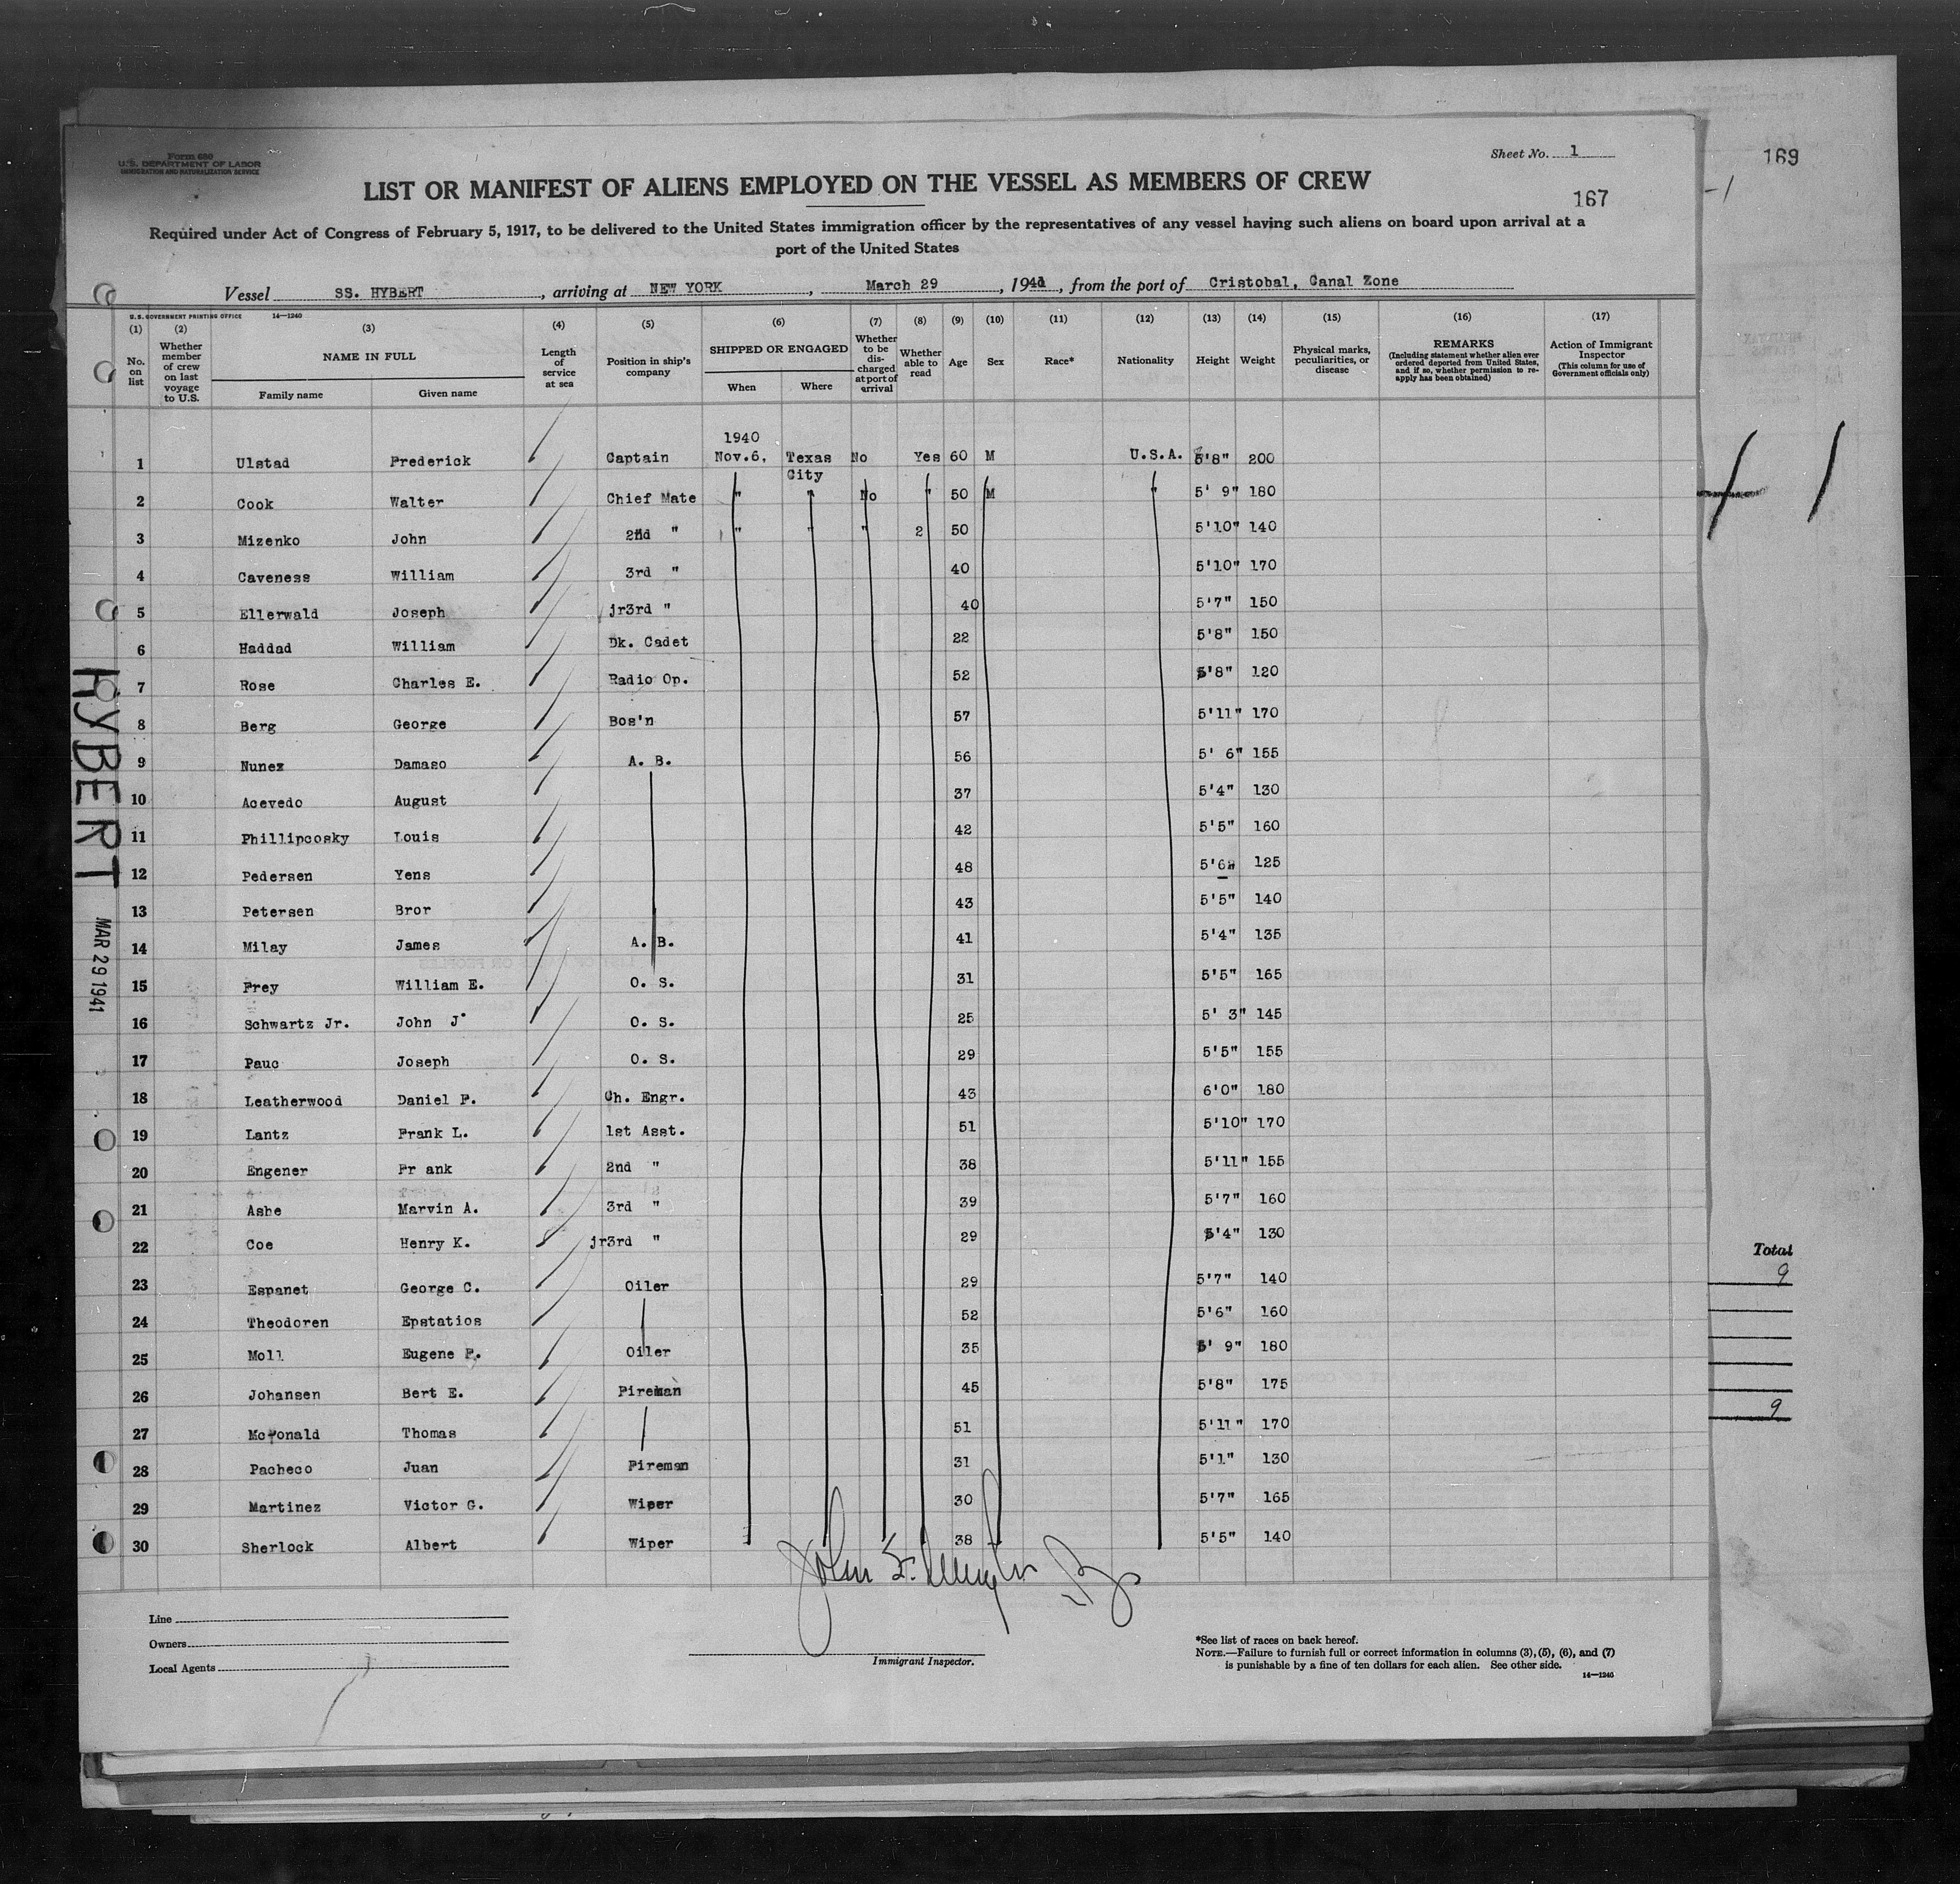 Form 680
U.S. DEPARTMENT OF LABOR
IMMIGRATION AND NATURALIZATION SERVICE
Sheet No. 1
169
LIST OR MANIFEST OF ALIENS EMPLOYED ON THE VESSEL AS MEMBERS OF CREW
167
-1
Required under Act of Congress of February 5, 1917, to be delivered to the United States immigration officer by the representatives of any vessel having such aliens on board upon arrival at a
port of the United States
Vessel SS. HYBERT, arriving at NEW YORK, March 29, 1941, from the port of Cristobal, Canal Zone
U.S. GOVERNMENT PRINTING OFFICE 14—1240
(1) No. on list
(2) Whether member of crew on last voyage to U.S.
(3) NAME IN FULL Family name Given name
(4) Length of service at sea
(5) Position in ship's company
(6) SHIPPED OR ENGAGED When Where
(7) Whether to be discharged at port of arrival
(8) Whether able to read
(9) Age
(10) Sex
(11) Race*
(12) Nationality
(13) Height
(14) Weight
(15) Physical marks, peculiarities, or disease
(16) REMARKS (Including statement whether alien ever ordered deported from United States, and if so, whether permission to reapply has been obtained)
(17) Action of Immigrant Inspector (This column for use of Government officials only)
1940
1 Ulstad Frederick Captain Nov.6, Texas City No Yes 60 M U.S.A. 5'8" 200
2 Cook Walter Chief Mate " " No " 50 M " 5' 9" 180
3 Mizenko John 2nd " " " " 2 50 5'10" 140
4 Caveness William 3rd " 40 5'10" 170
5 Ellerwald Joseph jr3rd " 40 5'7" 150
6 Haddad William Dk. Cadet 22 5'8" 150
7 Rose Charles E. Radio Op. 52 5'8" 120
8 Berg George Bos'n 57 5'11" 170
9 Nunez Damaso A. B. 56 5' 6" 155
10 Acevedo August 37 5'4" 130
11 Phillipcosky Louis 42 5'5" 160
12 Pedersen Yens 48 5'6" 125
13 Petersen Bror 43 5'5" 140
14 Milay James A. B. 41 5'4" 135
15 Frey William E. O. S. 31 5'5" 165
16 Schwartz Jr. John J. O. S. 25 5' 3" 145
17 Pauc Joseph O. S. 29 5'5" 155
18 Leatherwood Daniel P. Ch. Engr. 43 6'0" 180
19 Lantz Frank L. 1st Asst. 51 5'10" 170
20 Engener Fr ank 2nd " 38 5'11" 155
21 Ashe Marvin A. 3rd " 39 5'7" 160
22 Coe Henry K. jr3rd " 29 5'4" 130
23 Espanet George C. Oiler 29 5'7" 140
24 Theodoren Epstatios 52 5'6" 160
25 Moll Eugene P. Oiler 35 5' 9" 180
26 Johansen Bert E. Fireman 45 5'8" 175
27 McDonald Thomas 51 5'11" 170
28 Pacheco Juan Fireman 31 5'1" 130
29 Martinez Victor G. Wiper 30 5'7" 165
30 Sherlock Albert Wiper 38 5'5" 140
HYBERT
MAR 29 1941
Total
9
9
John
Line
Owners
Local Agents
Immigrant Inspector.
*See list of races on back hereof.
NOTE.—Failure to furnish full or correct information in columns (3), (5), (6), and (7)
is punishable by a fine of ten dollars for each alien. See other side.
14—1240